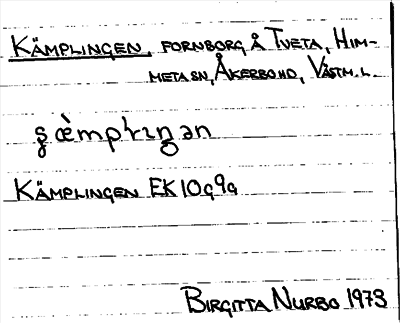 KÄMPLINGEN, FORNBORG Å TVETA, HIM-
META SN, ÅKERBO HD, VÄSTM. L.
KÄMPLINGEN EK 10g9a
BIRGITTA NURBO 1973